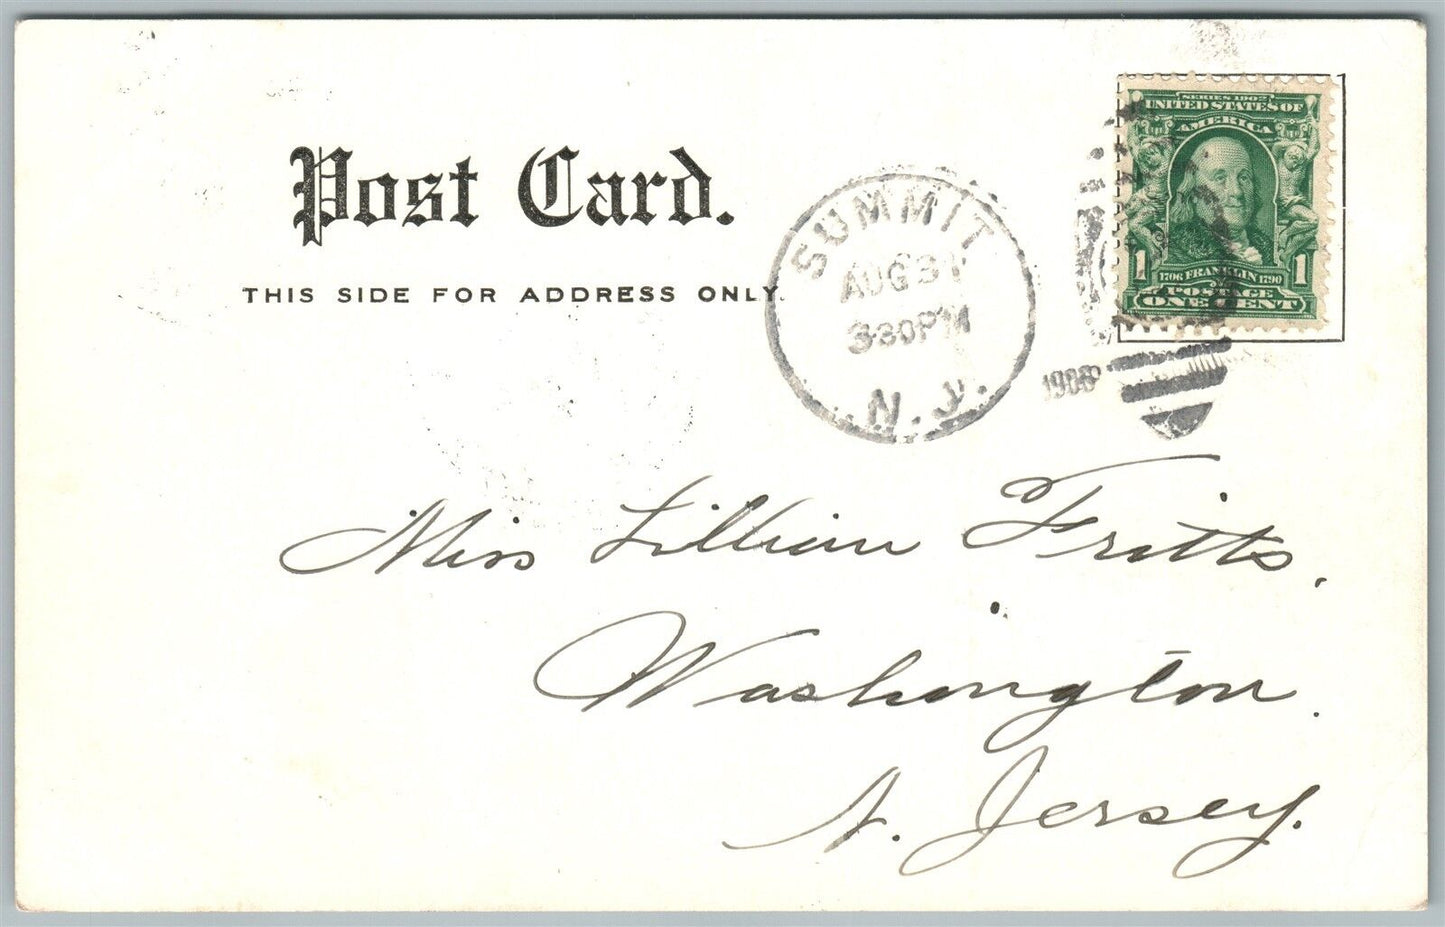 Post Card.
THIS SIDE FOR ADDRESS ONLY.
SUMMIT
AUG 31
3-30PM
N.J.
SERIES 1902
UNITED STATES OF
AMERICA
1706 FRANKLIN 1790
1 1
POSTAGE
ONE CENT
Miss Lillian Fritts.
Washington.
N. Jersey.